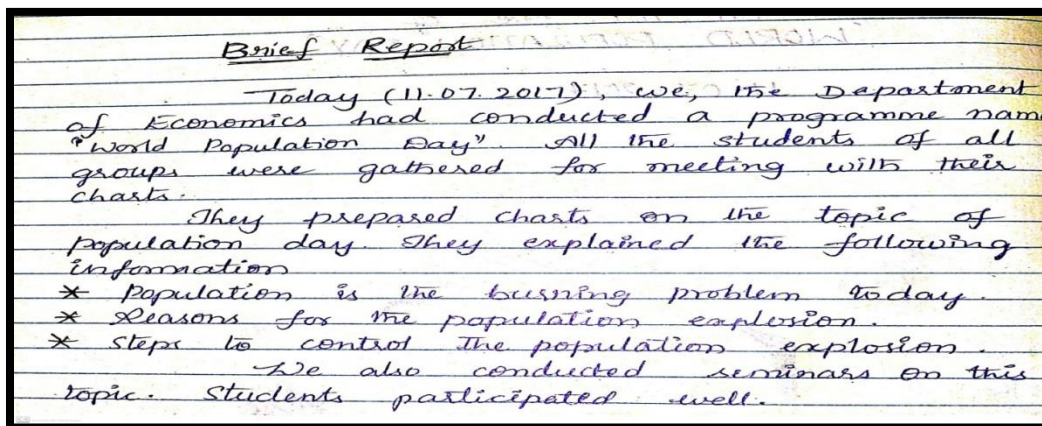 Brief Report
Today (11.07.2017), we, the Department
of Economics had conducted a programme nam
"World Population Day". All the students of all
groups were gathered for meeting with their
charts.
They prepared charts on the topic of
population day. They explained the following
information
* Population is the burning problem today.
* Reasons for the population explosion.
* Steps to control the population explosion.
We also conducted seminars on this
topic. Students participated well.